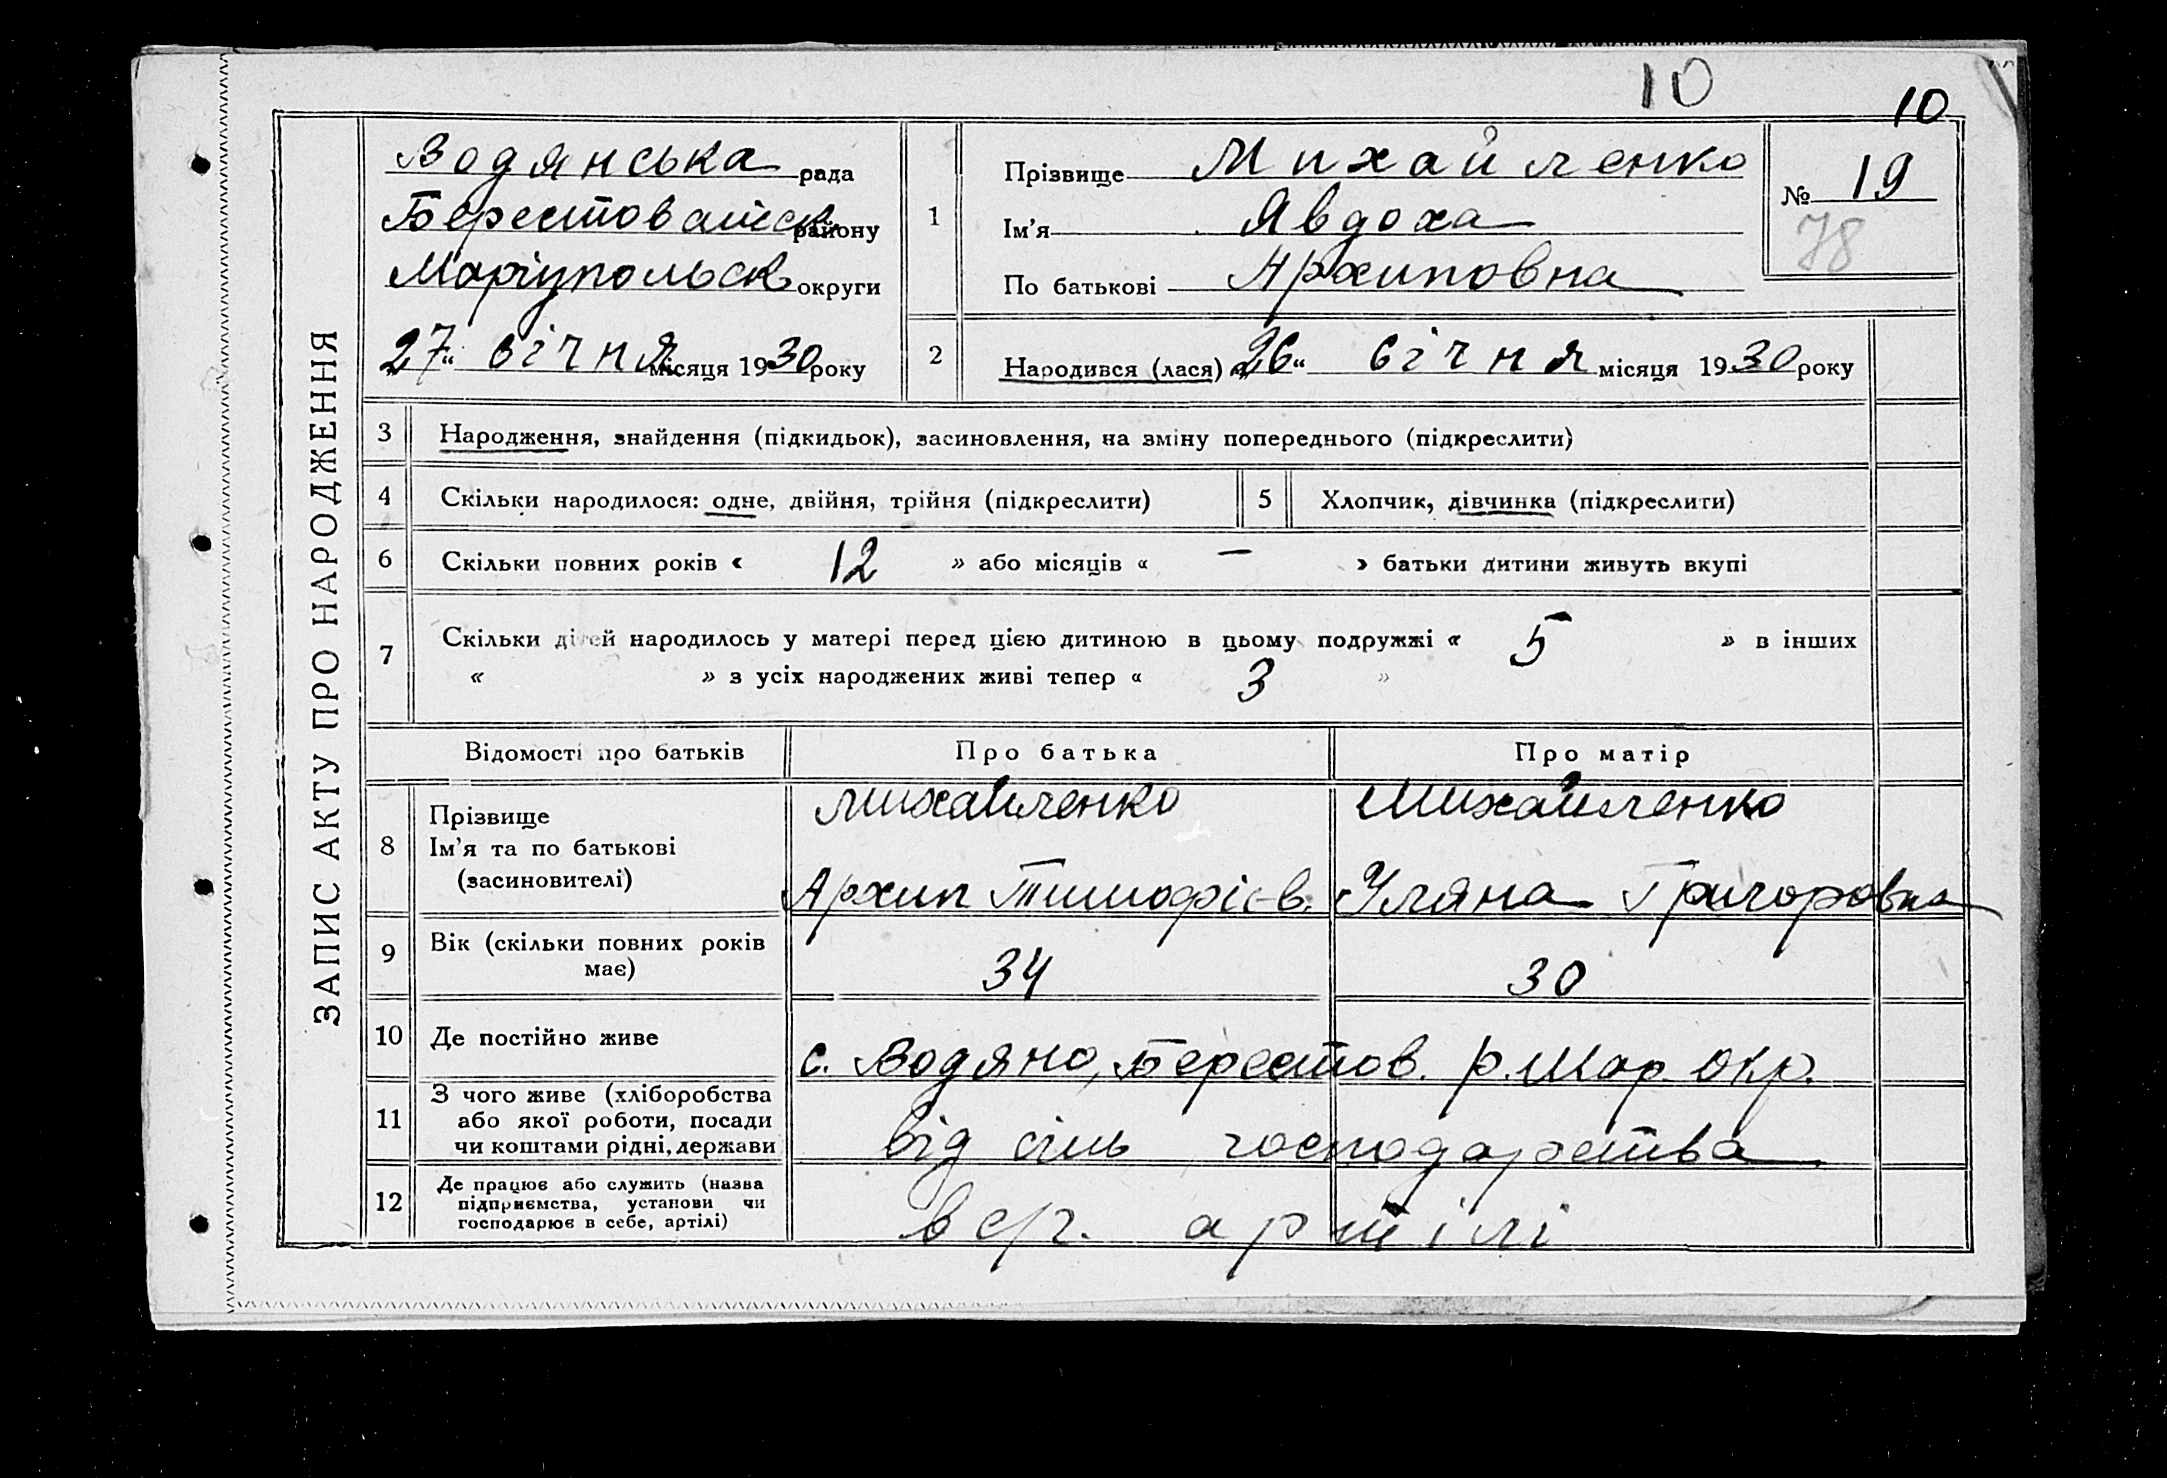 10
10
ЗАПИС АКТУ ПРО НАРОДЖЕННЯ
Водянська рада
Берестоватск. району
Маріупольск округи
27 " січня місяця 1930 року
1
Прізвище Михайленко
Ім'я Явдоха
По батькові Архиповна
№ 19
78
2
Народився (лася) „26" січня місяця 1930 року
3 Народження, знайдення (підкидьок), засиновлення, на зміну попереднього (підкреслити)
4 Скільки народилося: одне, двійня, трійня (підкреслити) 5 Хлопчик, дівчинка (підкреслити)
6 Скільки повних років « 12 » або місяців « — » батьки дитини живуть вкупі
7 Скільки дітей народилось у матері перед цією дитиною в цьому подружжі « 5 » в інших
« » з усіх народжених живі тепер « 3 »
Відомості про батьків Про батька Про матір
8 Прізвище
Ім'я та по батькові
(засиновителі)
Михайленко
Архип Тимофієв.
Михайленко
Уляна Григоровна
9 Вік (скільки повних років
має)
34 30
10 Де постійно живе с. Водяно, Берестов. р. Мар. Окр.
11 З чого живе (хліборобства
або якої роботи, посади
чи коштами рідні, держави
від сіль господарства
12 Де працює або служить (назва
підприємства, установи чи
господарює в себе, артілі)
в с/г. артілі